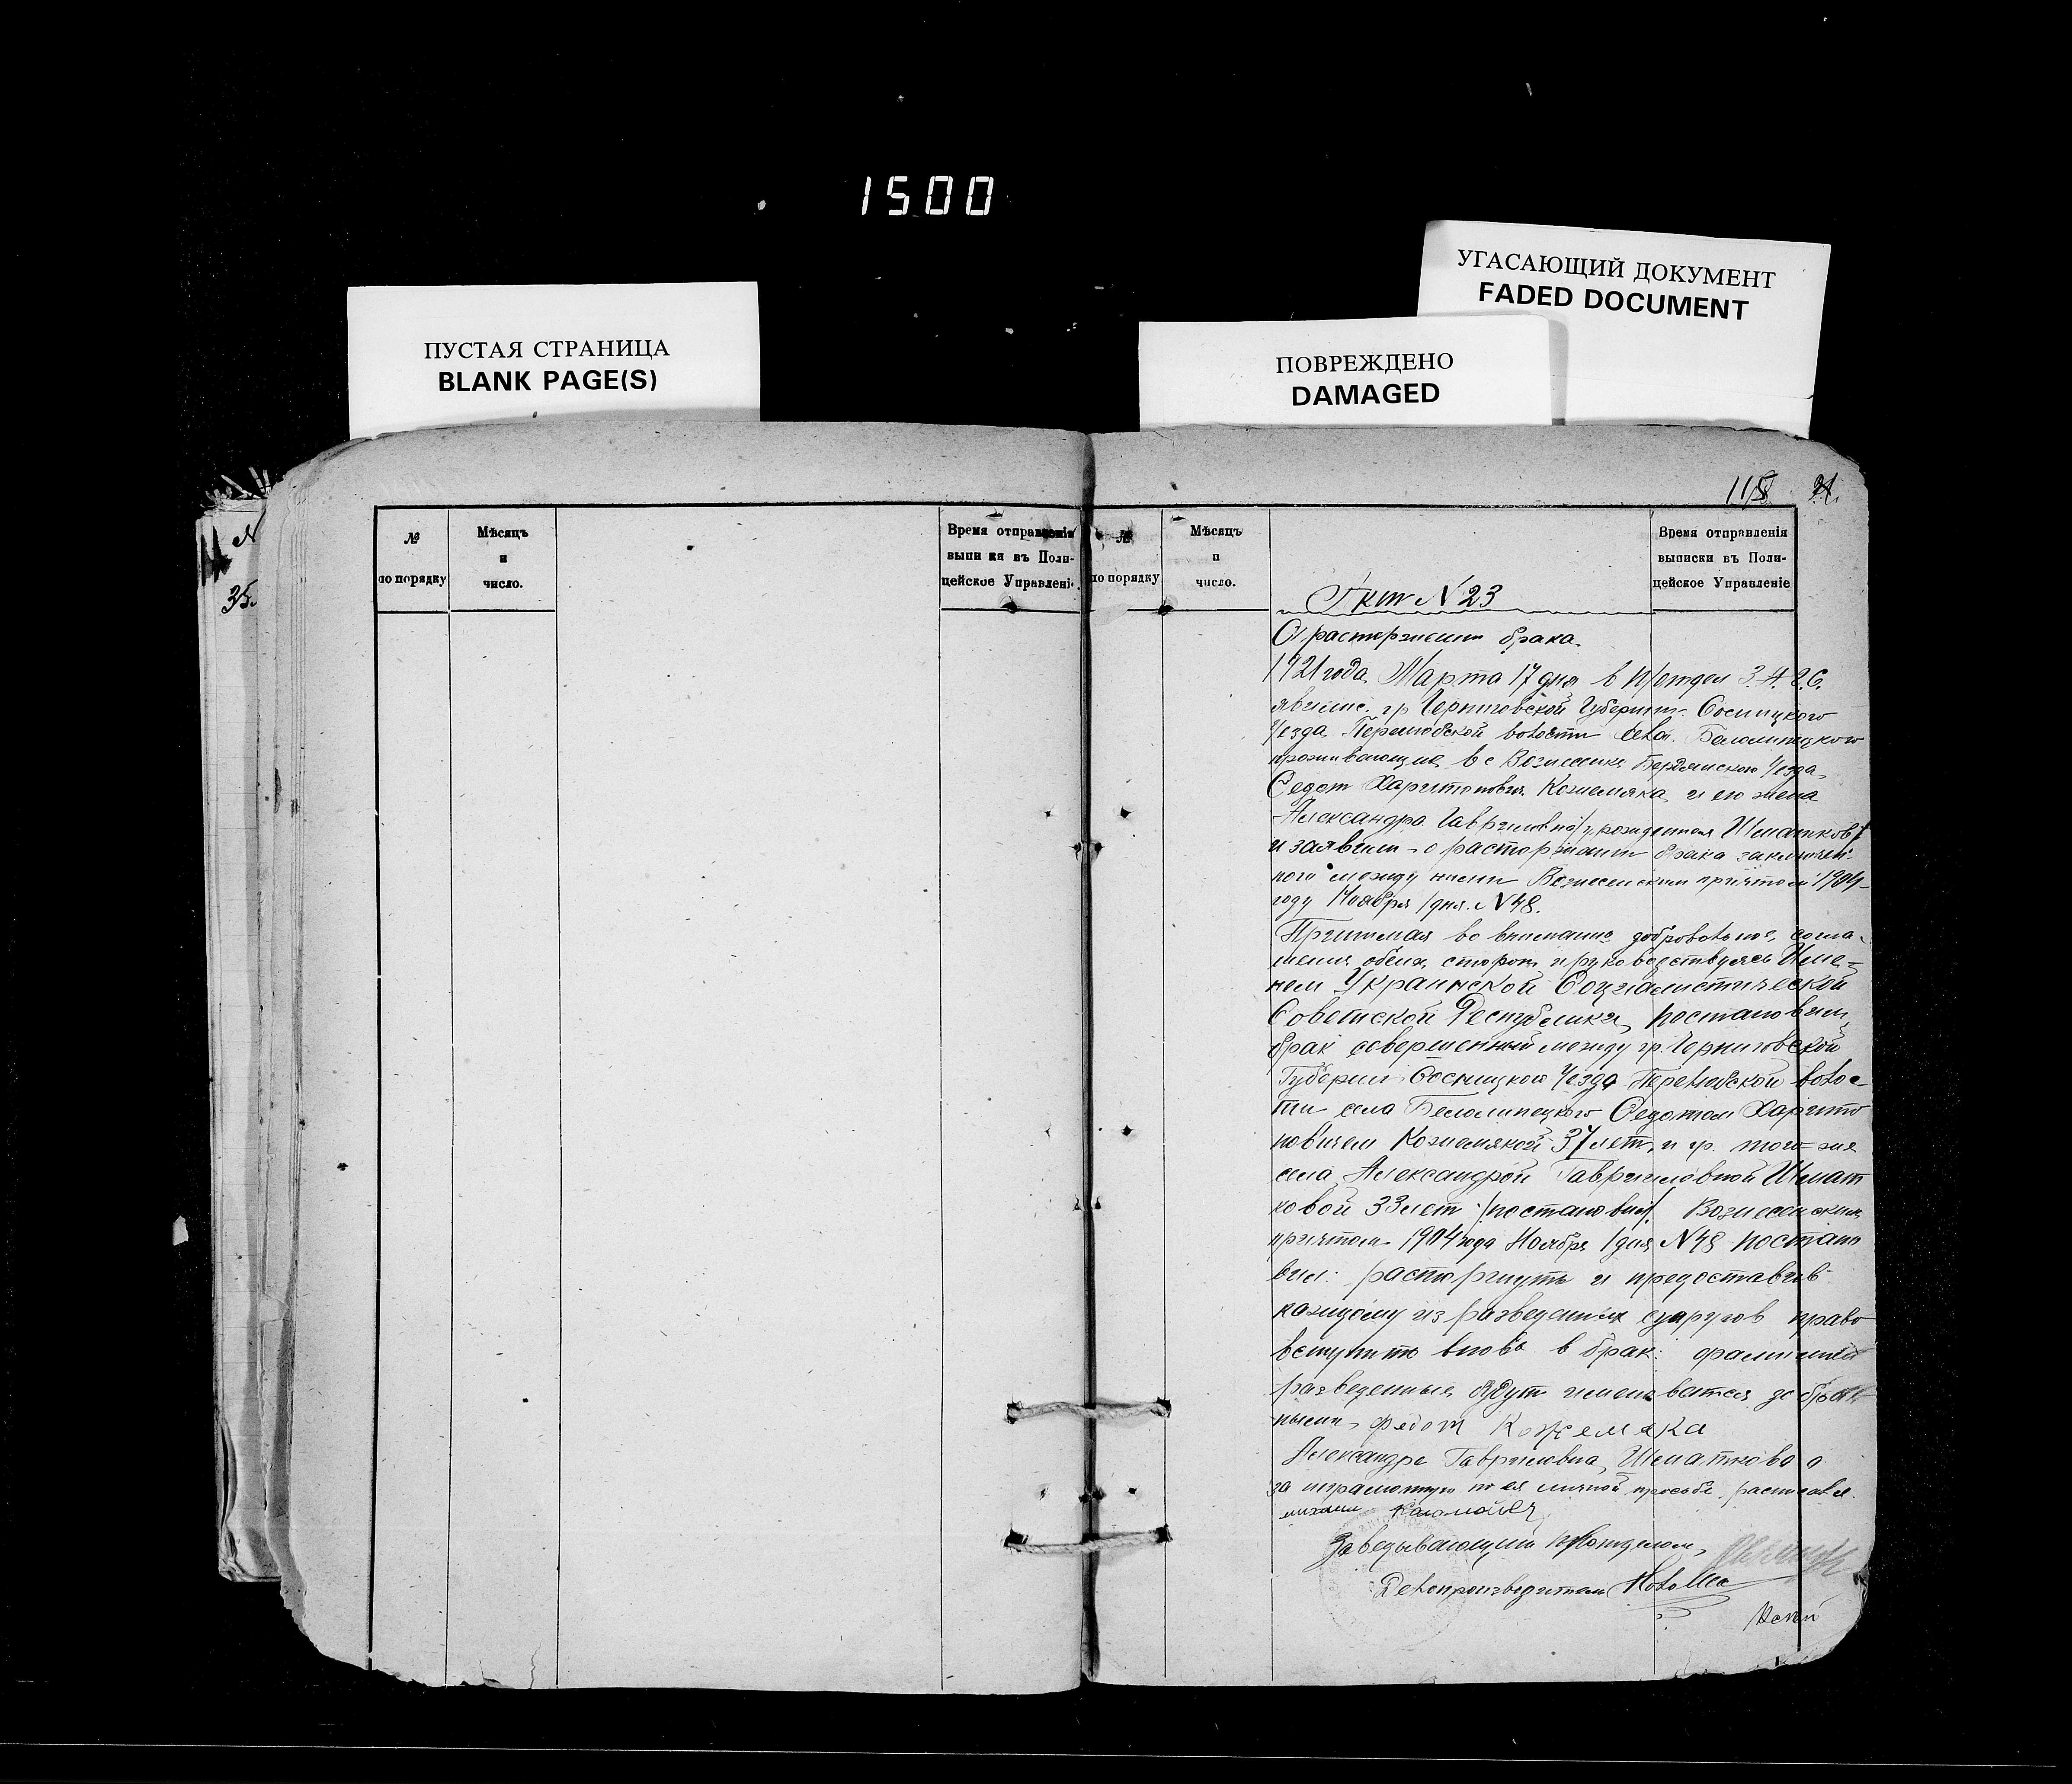 1500
УГАСАЮЩИЙ ДОКУМЕНТ
FADED DOCUMENT
ПУСТАЯ СТРАНИЦА
BLANK PAGE(S)
ПОВРЕЖДЕНО
DAMAGED
118
35.
№ по порядку
Мѣсяцъ и число.
Время отправленія выписки въ Полицейское Управленіе
№ по порядку
Мѣсяцъ и число.
Время отправленія
выписки въ Поли-
цейское Управленіе
Акт N 23
О расторжении брака.
1921 года Марта 17 дня в П/отдел З.А.Г.С.
явились гр Черниговской Губернии Сосницкого
Уезда волости села Белолипецкого
проживающие в с Вознесенке Бердянского Уезда
Федот Харитонович Кожемяка и его жена
Александра Гавриловна /урожденная Шматкова/
и заявили о расторжении брака заключен-
ного между ними Вознесенским причтом 1904
году Ноября 1 дня N 48.
Принимая во внимание добровольное согла-
шение обеих сторон и руководствуясь Име-
нем Украинской Социалистической
Советской Республики, постановил
брак совершенный между гр. Черниговской
Губернии Сосницкого Уезда волос-
ти села Белолипецкого Федотом Харито
новичем Кожемякой 37 лет и гр. того же
села Александрой Гавриловной Шмат
ковой 33 лет /постановил/ Вознесенским
причтом 1904 года Ноября 1 дня N 48 постано
вил: расторгнуть и предоставив
каждому из разведенных супругов право
вступить вновь в брак: фамилией
разведенные будут именоваться до брач
ными, Федот Кожемяка
Александра Гавриловна Шматкова а
за неграмотную по ея личной просьбе расписался
Заведывающий П/отделом
Делопроизводитель